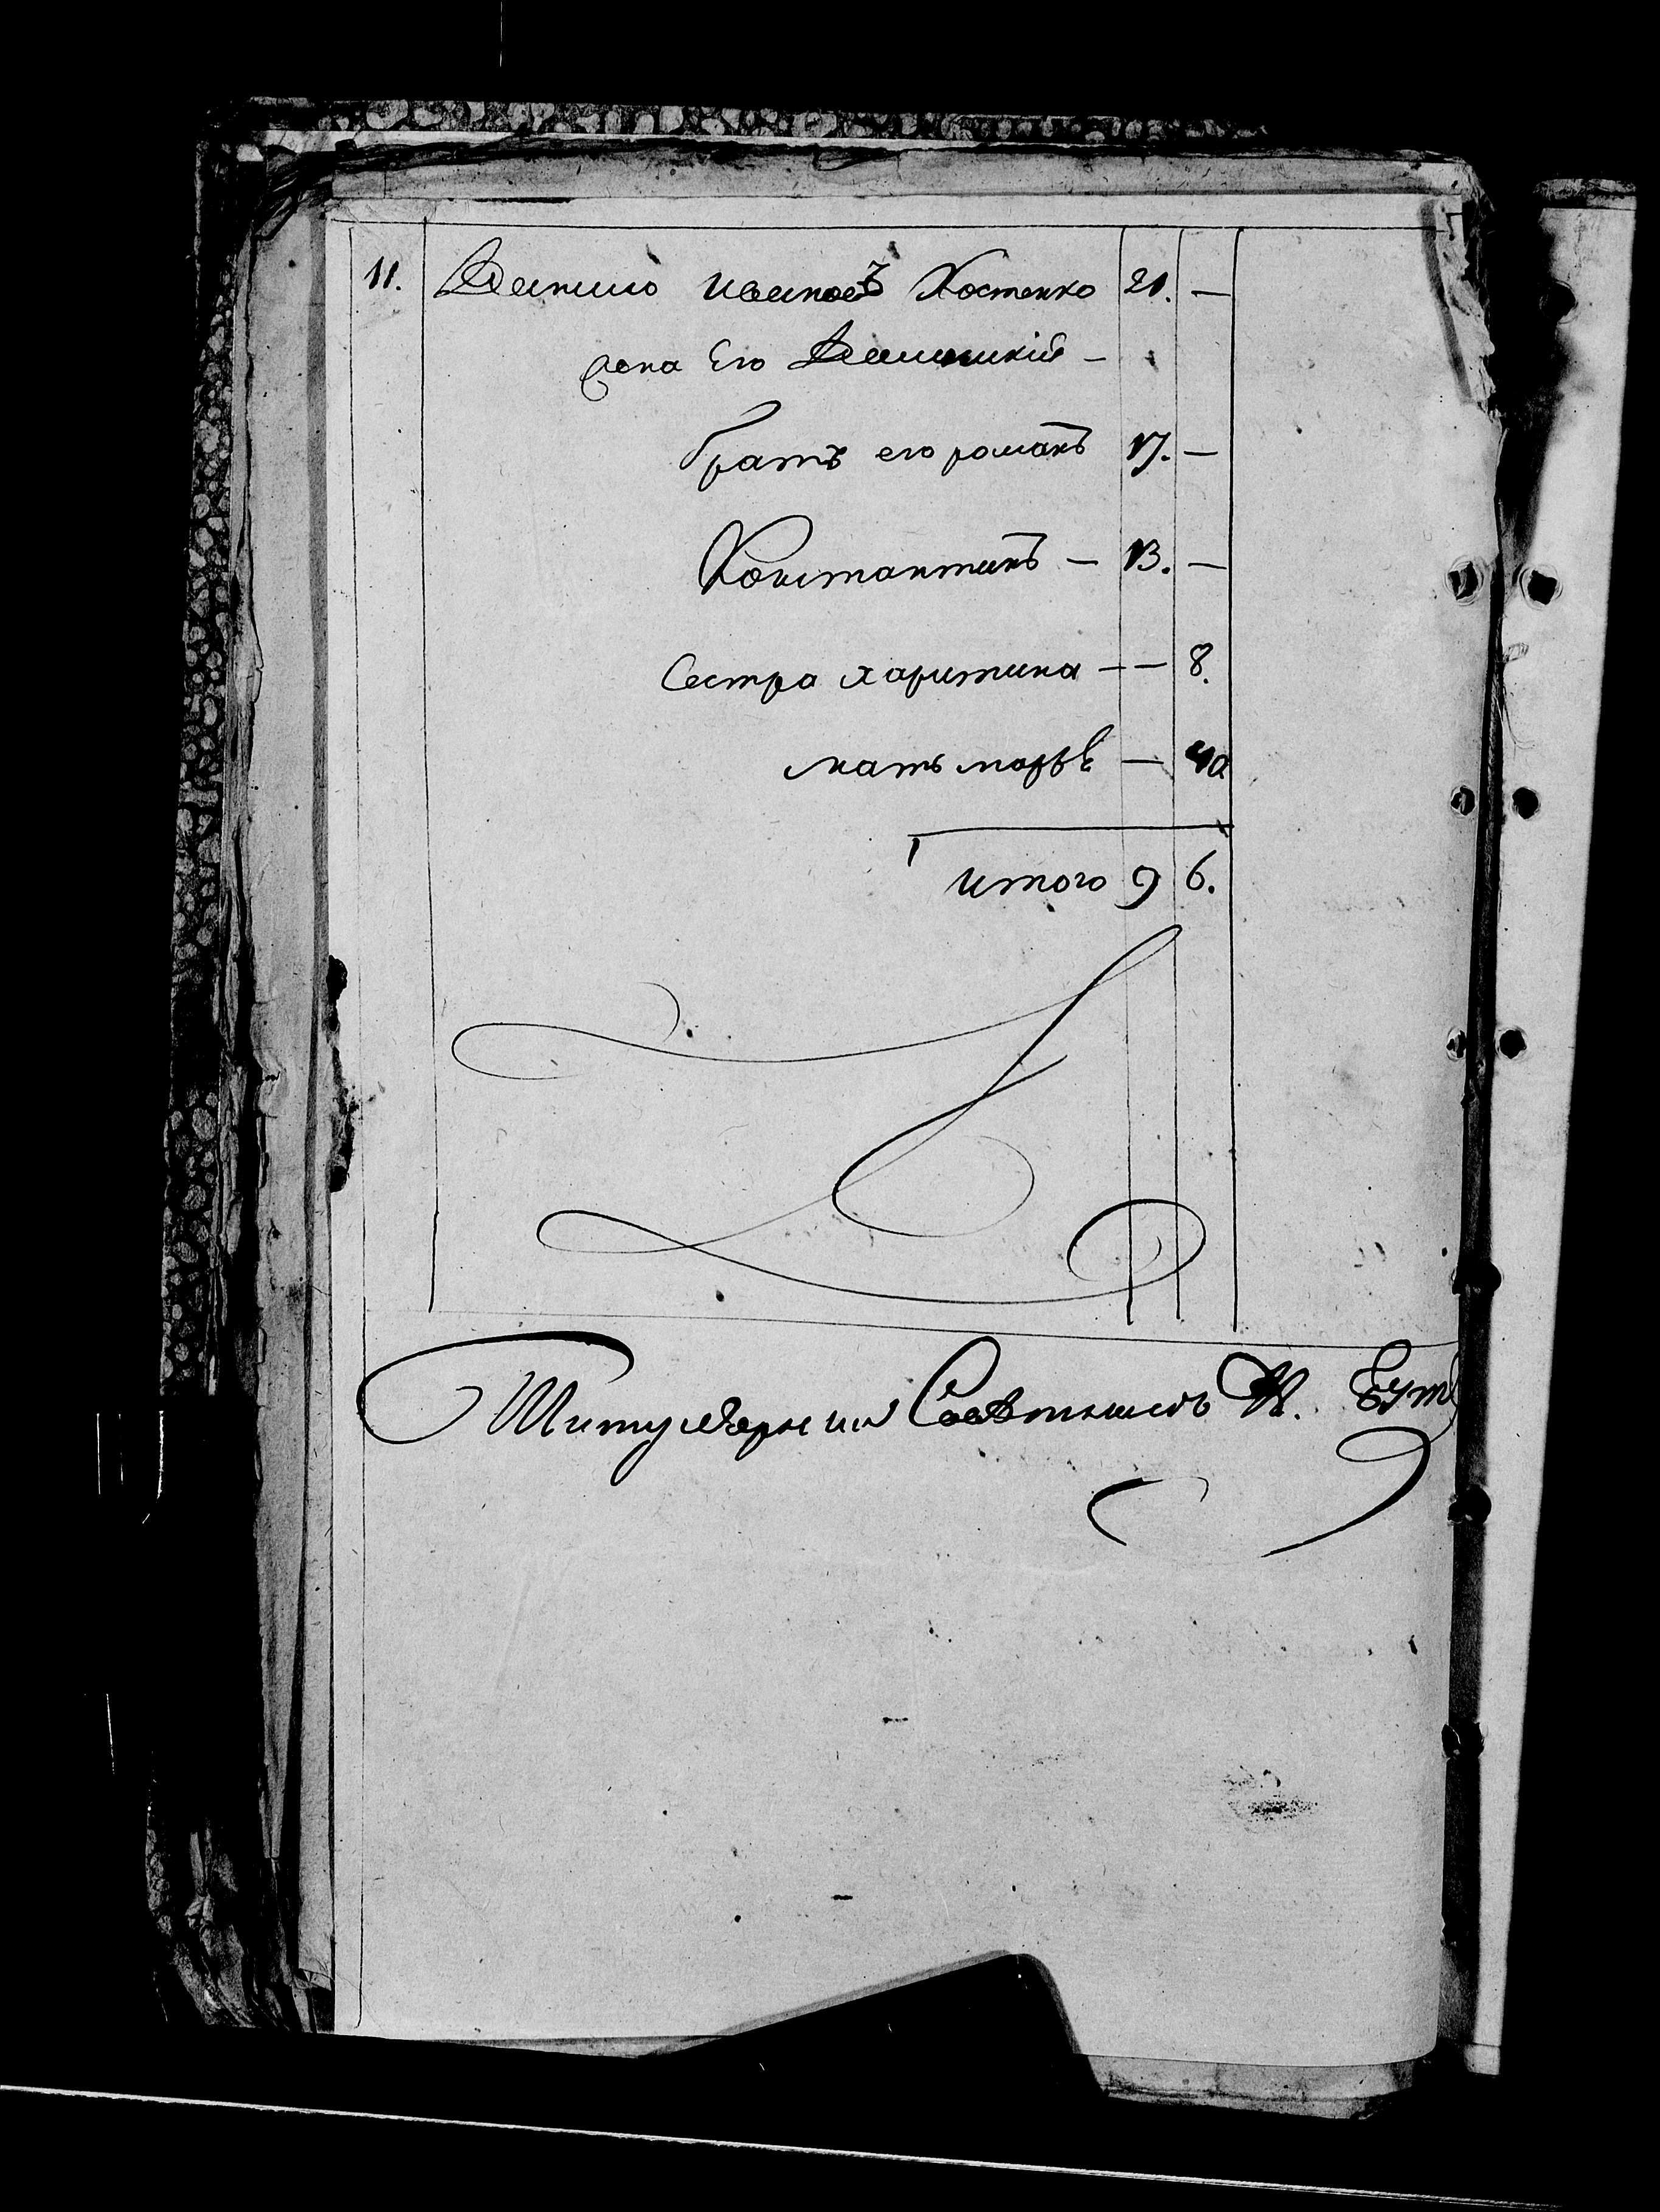 11. Данило Ивановъ Костенко 21. —
жена Его —
братъ его романъ 17. —
Константинъ — 13. —
Сестра харитина — — 8.
мать марья — 40
итого 9 6.
Титулярный Советникъ